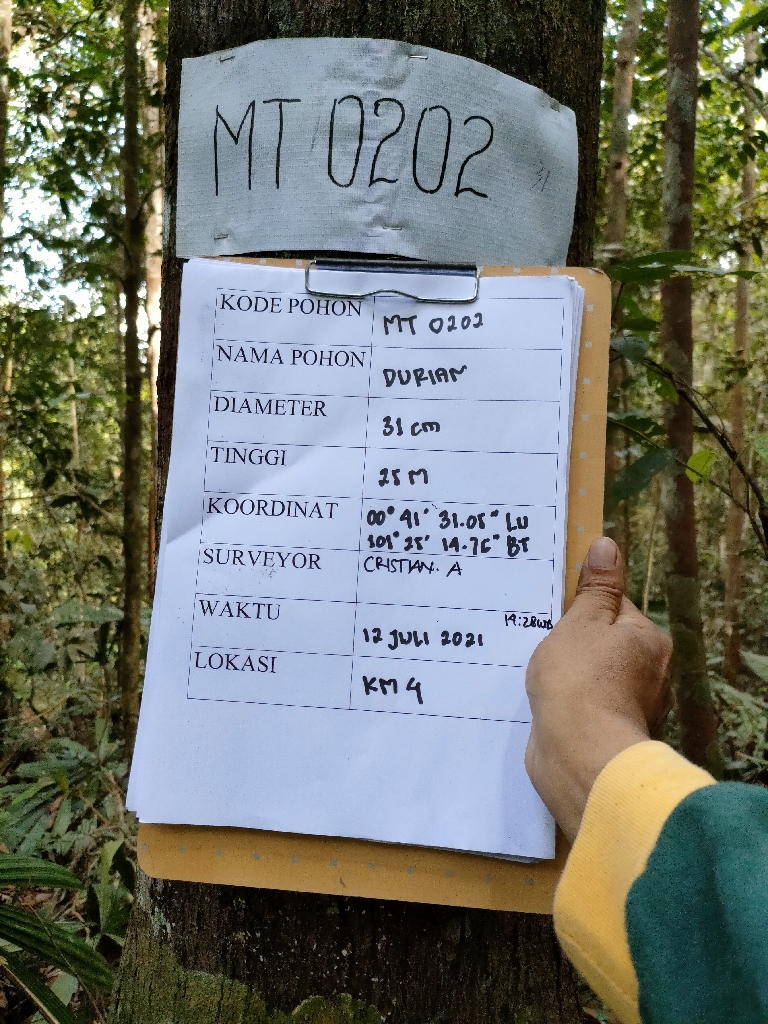 MT 0202
31
KODE POHON MT 0202
NAMA POHON DURIAN
DIAMETER 31 cm
TINGGI 25 M
KOORDINAT 00° 41' 31.05" LU
101° 25' 14.76" BT
SURVEYOR CRISTIAN. A
WAKTU 14:28 WIB
12 JULI 2021
LOKASI KM 4